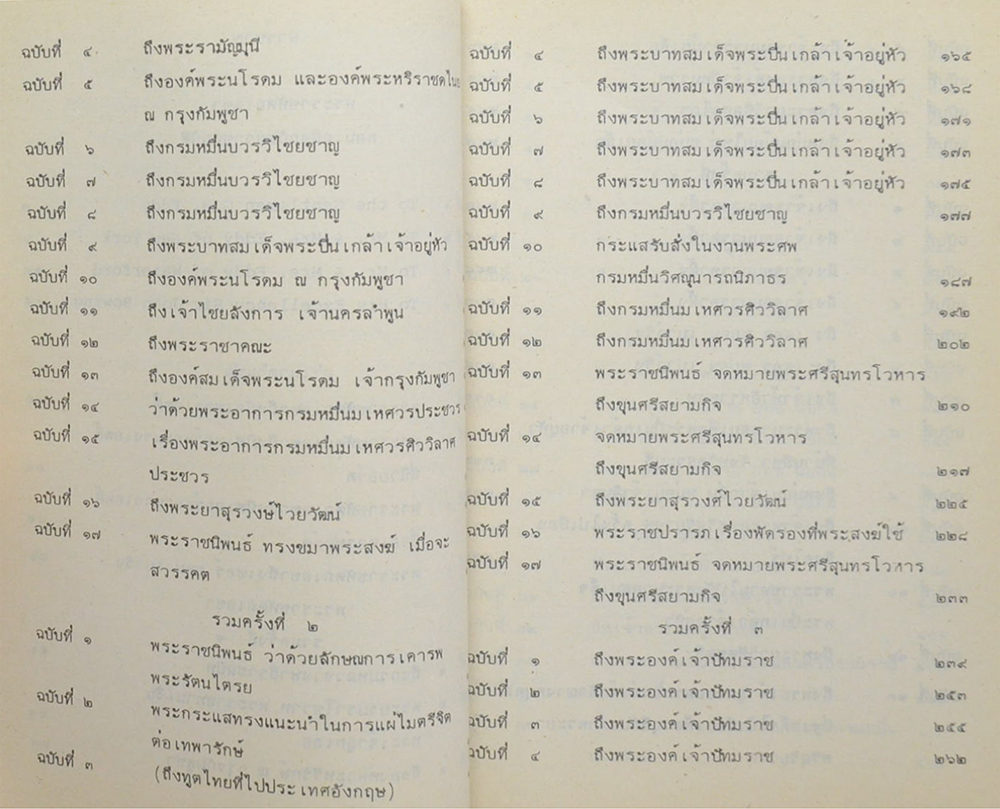 ฉบับที่ ๔ ถึงพระรามัญมุนี
ฉบับที่ ๕ ถึงองค์พระนโรดม และองค์พระหริราชดไนย
ณ กรุงกัมพูชา
ฉบับที่ ๖ ถึงกรมหมื่นบวรวิไชยชาญ
ฉบับที่ ๗ ถึงกรมหมื่นบวรวิไชยชาญ
ฉบับที่ ๘ ถึงกรมหมื่นบวรวิไชยชาญ
ฉบับที่ ๙ ถึงพระบาทสมเด็จพระปิ่นเกล้าเจ้าอยู่หัว
ฉบับที่ ๑๐ ถึงองค์พระนโรดม ณ กรุงกัมพูชา
ฉบับที่ ๑๑ ถึงเจ้าไชยลังการ เจ้านครลำพูน
ฉบับที่ ๑๒ ถึงพระราชาคณะ
ฉบับที่ ๑๓ ถึงองค์สมเด็จพระนโรดม เจ้ากรุงกัมพูชา
ฉบับที่ ๑๔ ว่าด้วยพระอาการกรมหมื่นมเหศวรประชวร
ฉบับที่ ๑๕ เรื่องพระอาการกรมหมื่นมเหศวรศิววิลาศ
ประชวร
ฉบับที่ ๑๖ ถึงพระยาสุรวงษ์ไวยวัฒน์
ฉบับที่ ๑๗ พระราชนิพนธ์ ทรงขมาพระสงฆ์ เมื่อจะ
สวรรคต
รวมครั้งที่ ๒
ฉบับที่ ๑ พระราชนิพนธ์ ว่าด้วยลักษณการเคารพ
พระรัตนไตรย
ฉบับที่ ๒ พระกระแสทรงแนะนำในการแผ่ไมตรีจิต
ต่อเทพารักษ์
ฉบับที่ ๓ (ถึงทูตไทยที่ไปประเทศอังกฤษ)
ฉบับที่ ๔ ถึงพระบาทสมเด็จพระปิ่นเกล้าเจ้าอยู่หัว ๑๖๕
ฉบับที่ ๕ ถึงพระบาทสมเด็จพระปิ่นเกล้าเจ้าอยู่หัว ๑๖๘
ฉบับที่ ๖ ถึงพระบาทสมเด็จพระปิ่นเกล้าเจ้าอยู่หัว ๑๗๑
ฉบับที่ ๗ ถึงพระบาทสมเด็จพระปิ่นเกล้าเจ้าอยู่หัว ๑๗๓
ฉบับที่ ๘ ถึงพระบาทสมเด็จพระปิ่นเกล้าเจ้าอยู่หัว ๑๗๕
ฉบับที่ ๙ ถึงกรมหมื่นบวรวิไชยชาญ ๑๗๗
ฉบับที่ ๑๐ กระแสรับสั่งในงานพระศพ
กรมหมื่นวิศณุนารถนิภาธร ๑๘๗
ฉบับที่ ๑๑ ถึงกรมหมื่นมเหศวรศิววิลาศ ๑๙๒
ฉบับที่ ๑๒ ถึงกรมหมื่นมเหศวรศิววิลาศ ๒๐๒
ฉบับที่ ๑๓ พระราชนิพนธ์ จดหมายพระศรีสุนทรโวหาร
ถึงขุนศรีสยามกิจ ๒๑๐
ฉบับที่ ๑๔ จดหมายพระศรีสุนทรโวหาร
ถึงขุนศรีสยามกิจ ๒๑๗
ฉบับที่ ๑๕ ถึงพระยาสุรวงศ์ไวยวัฒน์ ๒๒๕
ฉบับที่ ๑๖ พระราชปรารภเรื่องพัดรองที่พระสงฆ์ใช้ ๒๒๘
ฉบับที่ ๑๗ พระราชนิพนธ์ จดหมายพระศรีสุนทรโวหาร
ถึงขุนศรีสยามกิจ ๒๓๓
รวมครั้งที่ ๓
ฉบับที่ ๑ ถึงพระองค์เจ้าปัทมราช ๒๓๙
ฉบับที่ ๒ ถึงพระองค์เจ้าปัทมราช ๒๕๓
ฉบับที่ ๓ ถึงพระองค์เจ้าปัทมราช ๒๕๕
ฉบับที่ ๔ ถึงพระองค์เจ้าปัทมราช ๒๖๒